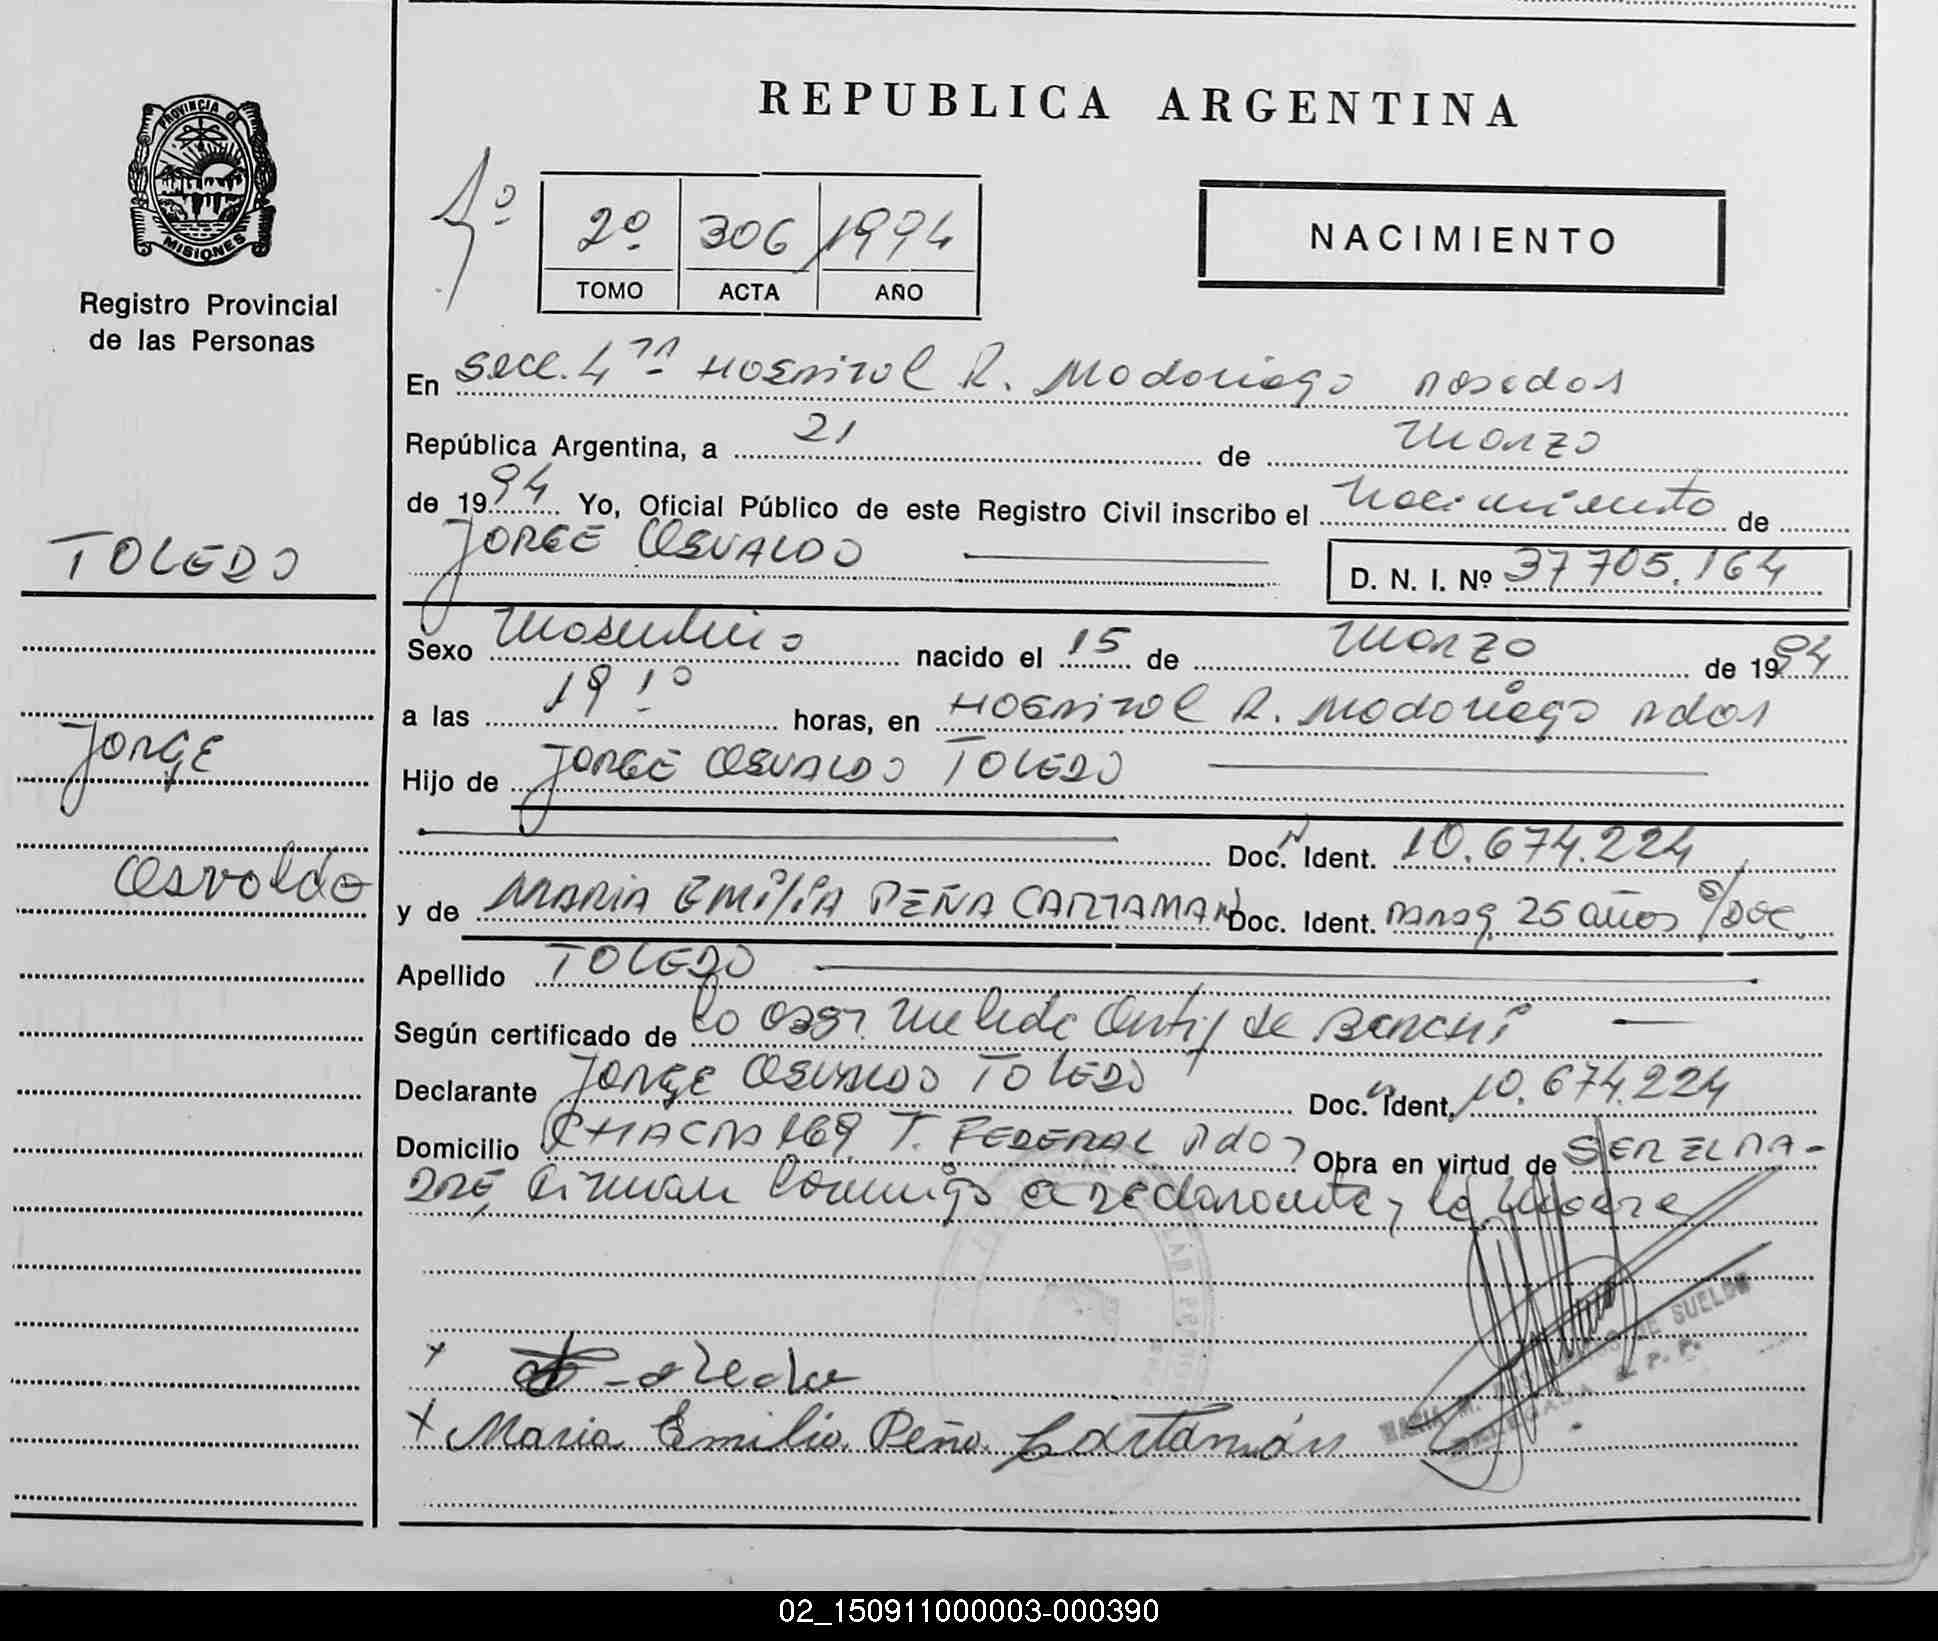 REPUBLICA ARGENTINA
PROVINCIA DE
MISIONES
Registro Provincial
de las Personas
2º 306 1994
TOMO ACTA AÑO
NACIMIENTO
En Secc. 4ta Hospital R. Madariaga Posadas
República Argentina, a 21 de Marzo
de 1994 Yo, Oficial Público de este Registro Civil inscribo el Nacimiento de
JORGE OSVALDO
D. N. I. Nº 37705.164
TOLEDO
Jorge
Osvaldo
Sexo Masculino nacido el 15 de Marzo de 1994
a las 19 horas, en Hospital R. Madariaga Pdas
Hijo de JORGE OSVALDO TOLEDO
Doc. N Ident. 10.674.224
y de MARIA EMILIA PEÑA CARTAMAN Doc. Ident. Parag. 25 años s/Doc.
Apellido TOLEDO
Según certificado de la de
Declarante JORGE OSVALDO TOLEDO Doc. N Ident. 10.674.224
Domicilio CHACRA 169 T. FEDERAL Pdas Obra en virtud de SER EL PA-
DRE, Firman conmigo el Declarante y la Madre
x
x Maria Emilia Peña Cartamán
MARIA M. DE SUELDO
DELEGADA R. P. P.
02_150911000003-000390